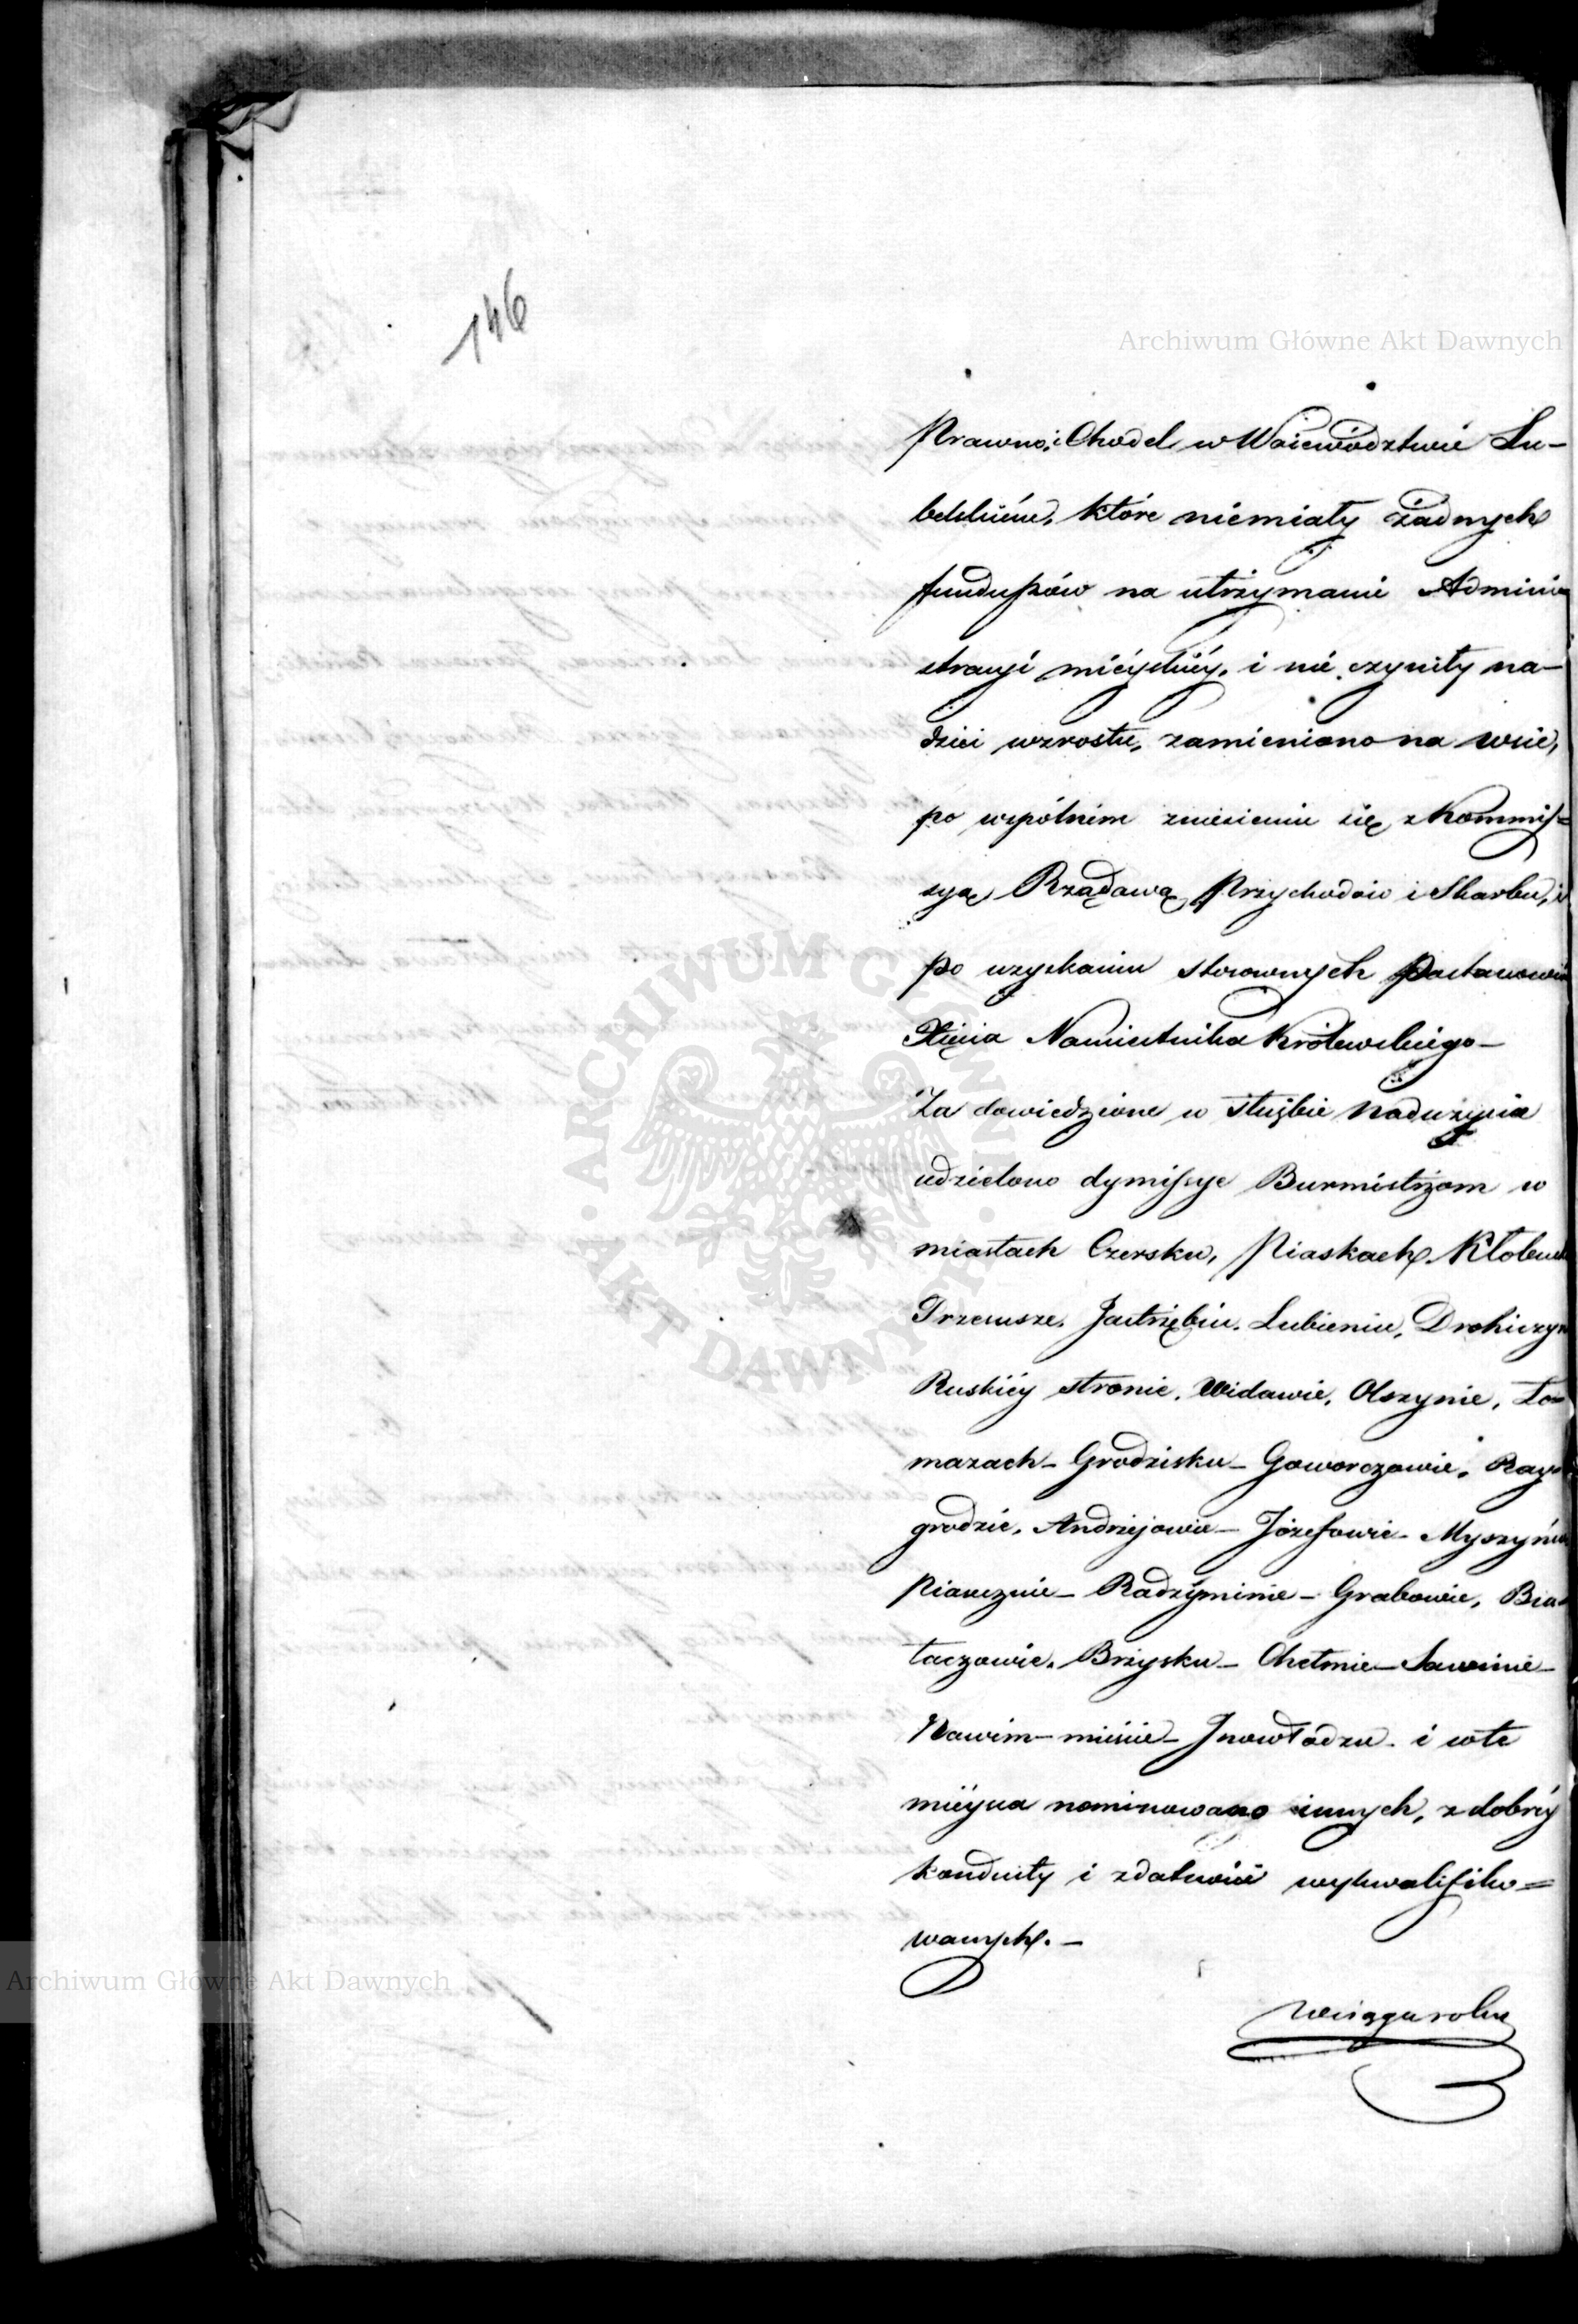 146
Archiwum Główne Akt Dawnych
Prawno i Chodel w Woiewództwie Lu-
belskiém, które niemiały żadnych
funduszów na utrzymanie Admini
stracyi mieyskiéy, i nie czyniły na-
dziei wzrostu, zamieniono na wsie,
po wspólnem zniesieniu się z Kommis=
syą Rządową Przychodów i Skarbu, i
po uzyskaniu stosownych Postanowień
Xięcia Namiestnika Królewskiego-
Za dowiedzione w służbie nadużycia
udzielono dymissye Burmistrzom w
miastach Czersku, Piaskach, Kłobuc
Przerusze, Jastrzębiu, Lubieniu, Drohiczyn
Ruskiéy stronie, Widawie, Olszynie, Ło
mazach- Grodzisku- Goworczowie, Ray
grodzie, Andrzejowie- Józefowie- Myszyń
Piasecznie- Radzyminie- Grabowie, Bia
łaczowie, Brzysku- Chełmie- Sawinie-
Nowém- mieście- Inowłodzu- i w te
mieysca nominowano innych, z dobréy
konduity i zdatności wykwalifiko=
wanych.-
W ciągu roku
ARCHIWUM GŁÓWNE AKT DAWNYCH
Archiwum Główne Akt Dawnych